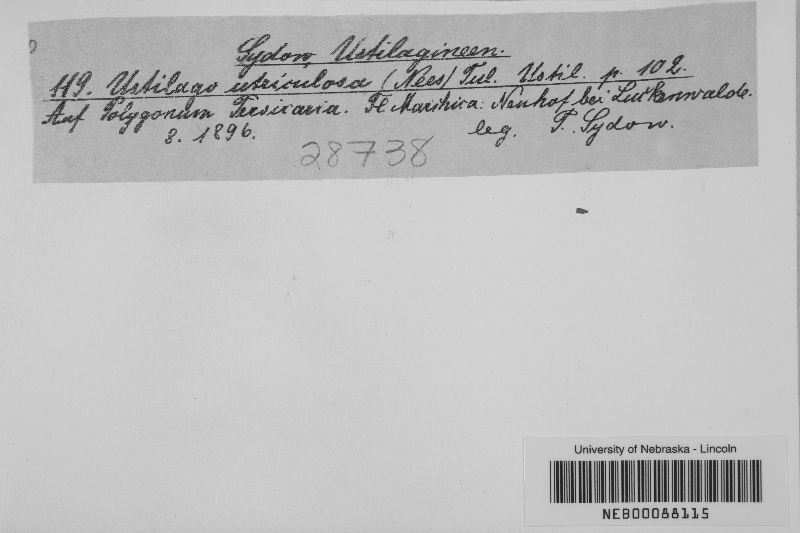 Sydow, Ustilagineen.
119. Ustilago utriculosa (Nees) Tul. Ustil. p. 102.
Auf Polygonum Persicaria. Fl. Marchica: Neuhof bei Luckenwalde.
8. 1896. leg. P. Sydow.
28738
University of Nebraska - Lincoln
NEB00088115